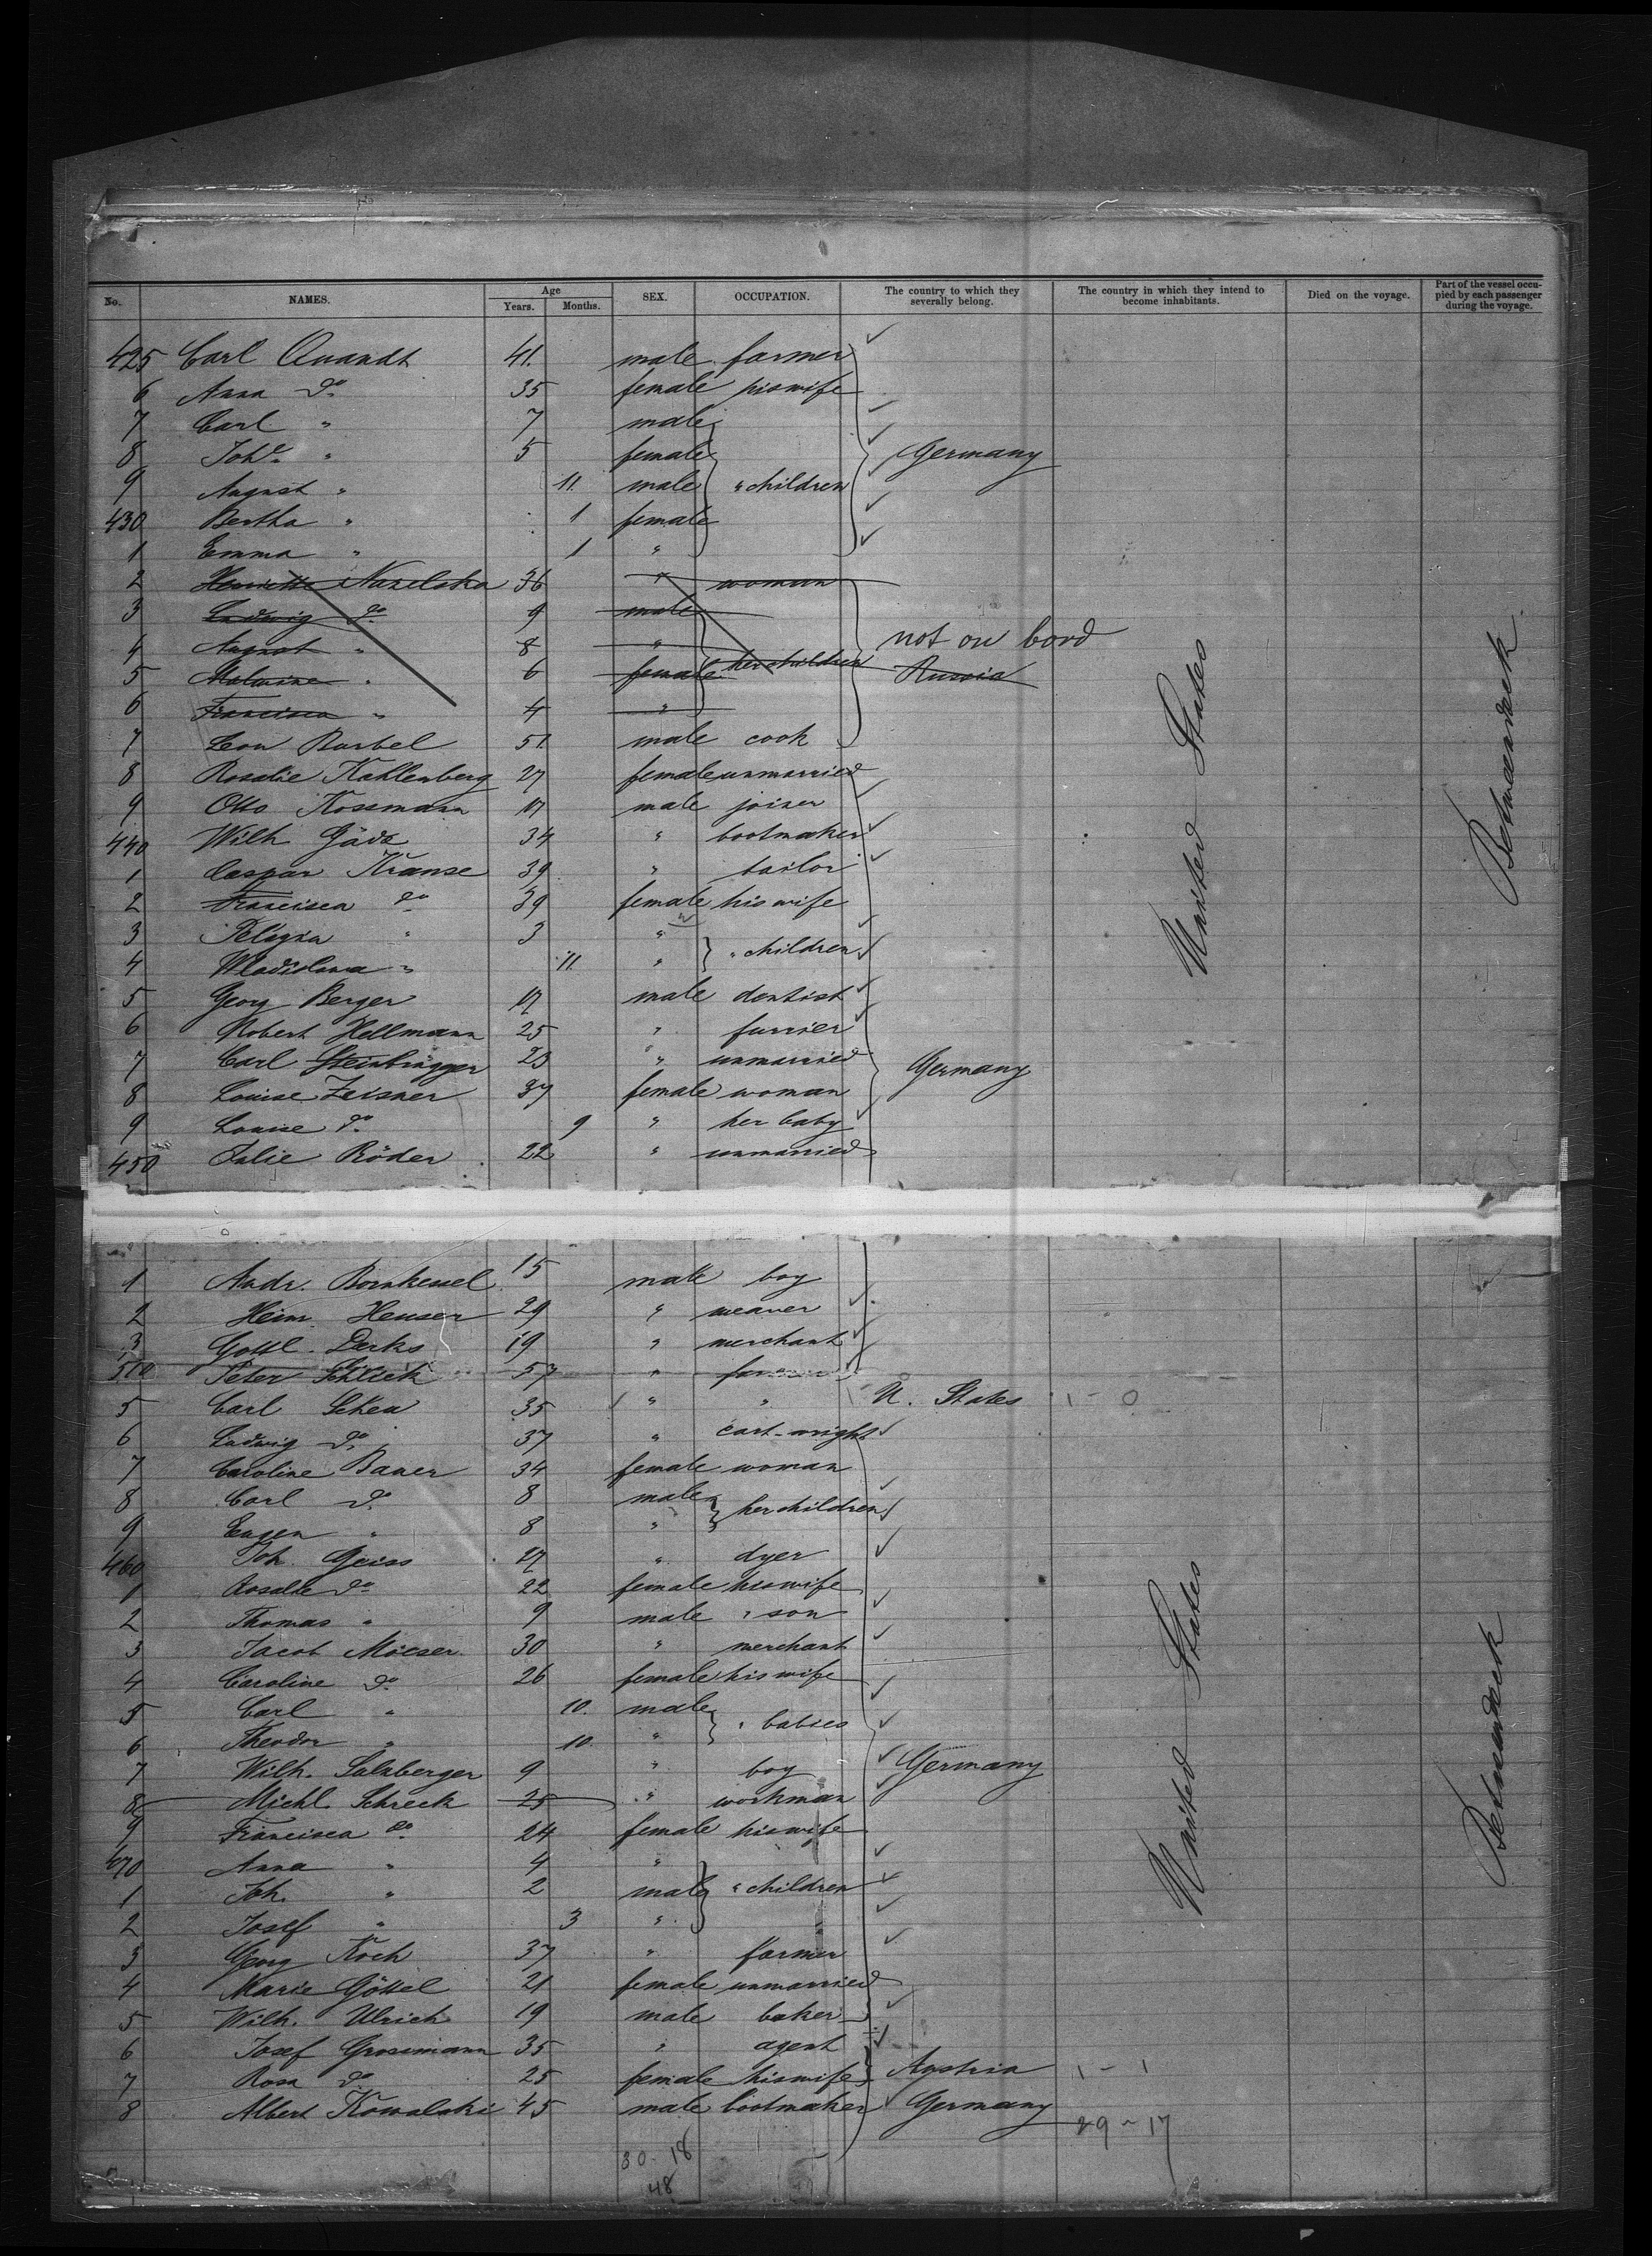 No. NAMES. Age Years. Months. SEX. OCCUPATION. The country to which they severally belong. The country in which they intend to become inhabitants. Died on the voyage. Part of the vessel occupied by each passenger during the voyage.
425 Carl Quandt 41. male farmer
6 Anna do 35 female his wife
7 Carl " 7 male
8 Johe " 5 female Germany
9 August " 11. male " children
430 Bertha " 1 female
1 Emma " 1 "
2 Henriette Nazelska 36 " woman
3 Ludwig do 9 male
4 August " 8 " not on bord
5 Malwine " 6 female her children Russia
6 Francisca " 4 "
7 Leon Barbel 51 male cook
8 Rosalie Kahlenberg 27 female unmarried
9 Otto Kossmann 17 male joiner
440 Wilh Gäde 34 " bootmaker
1 Caspar Kranse 39 " tailor
2 Francisca do 39 female his wife
3 Pelagia " 3 "
4 Wladislawa " 11. " " children
5 Georg Berger 17 male dentist
6 Robert Hellmann 25 " furrier
7 Carl Steinbrügger 23 " unmarried Germany
8 Louise Zeisner 37 female woman
9 Louise do 9 " her baby
450 Julie Röder 22 " unmarried
United States
Betweendeck
1 Andr. Bornkessel 15 male boy
2 Heinr. Heuser 29 " weaver
3 Gottl. Derks 19 " merchant
Peter Schlick 57 " farmer
5 Carl Scheu 35 " " U. States 1 - 0
6 Ludwig do 37 " cart-wright
7 Caroline Bauer 34 female woman
8 Carl do 8 male her children
9 Eugen " 8 "
460 Joh. Geiss 27 " dyer
1 Rosalie do 22 female his wife
2 Thomas " 9 male " son
3 Jacob Möeser 30 " merchant
4 Caroline do 26 female his wife
5 Carl " 10. male " babies
6 Theodor " 10. "
7 Wilh. Salzberger 9 " boy Germany
8 Michl. Schreck 25 " workman
9 Francisca do 24 female his wife
470 Anna " 4 "
1 Joh. " 2 male " children
2 Josef " 3 "
3 Georg Koch 37 " farmer
4 Marie Göttel 21 female unmarried
5 Wilh. Ulrich 19 male baker
6 Josef Grossmann 35 " agent
7 Rosa do 25 female his wife Austria 1 - 1
8 Albert Kowalski 45 male bootmaker Germany
29 - 17
30 - 18
48
United States
Betweendeck